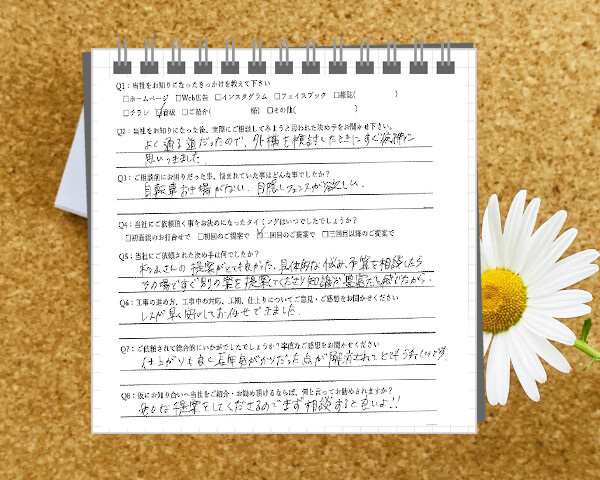 Q1：当社をお知りになったきっかけを教えて下さい
□ホームページ □Web広告 □インスタグラム □フェイスブック □雑誌( )
□チラシ ☑看板 □ご紹介( 様) □その他( )
Q2：当社をお知りになった後、実際にご相談してみようと思われた決め手をお聞かせ下さい。
よく通る道だったので、外構を検討したときにすぐ候補に
思いつきました
Q3：ご相談前にお困りだった事、悩まれていた事はどんな事でしたか？
自転車おき場がない、目隠しフェンスが欲しい。
Q4：当社にご依頼頂く事をお決めになったタイミングはいつでしたでしょうか？
□初面談のお打合せで □初回のご提案で ☑二回目のご提案で □三回目以降のご提案で
Q5：当社にご依頼された決め手は何でしたか？
さんの提案がとても良かった、具体的な悩み、予算を相談したら
その場ですぐ別の案を提案してくださり知識が豊富だと感じたから。
Q6：工事の進め方、工事中の対応、工期、仕上りについてご意見・ご感想をお聞かせください
早く安心してお任せできました。
Q7：ご依頼されて総合的にいかがでしたでしょうか？率直なご感想をお聞かせください
仕上がりも良く長年気がかりだった点が解消されてとても
Q8：仮にお知り合いへ当社をご紹介・お勧め頂けるならば、何と言ってお勧めされますか？
提案をしてくださるのでまず相談すると良いよ!!